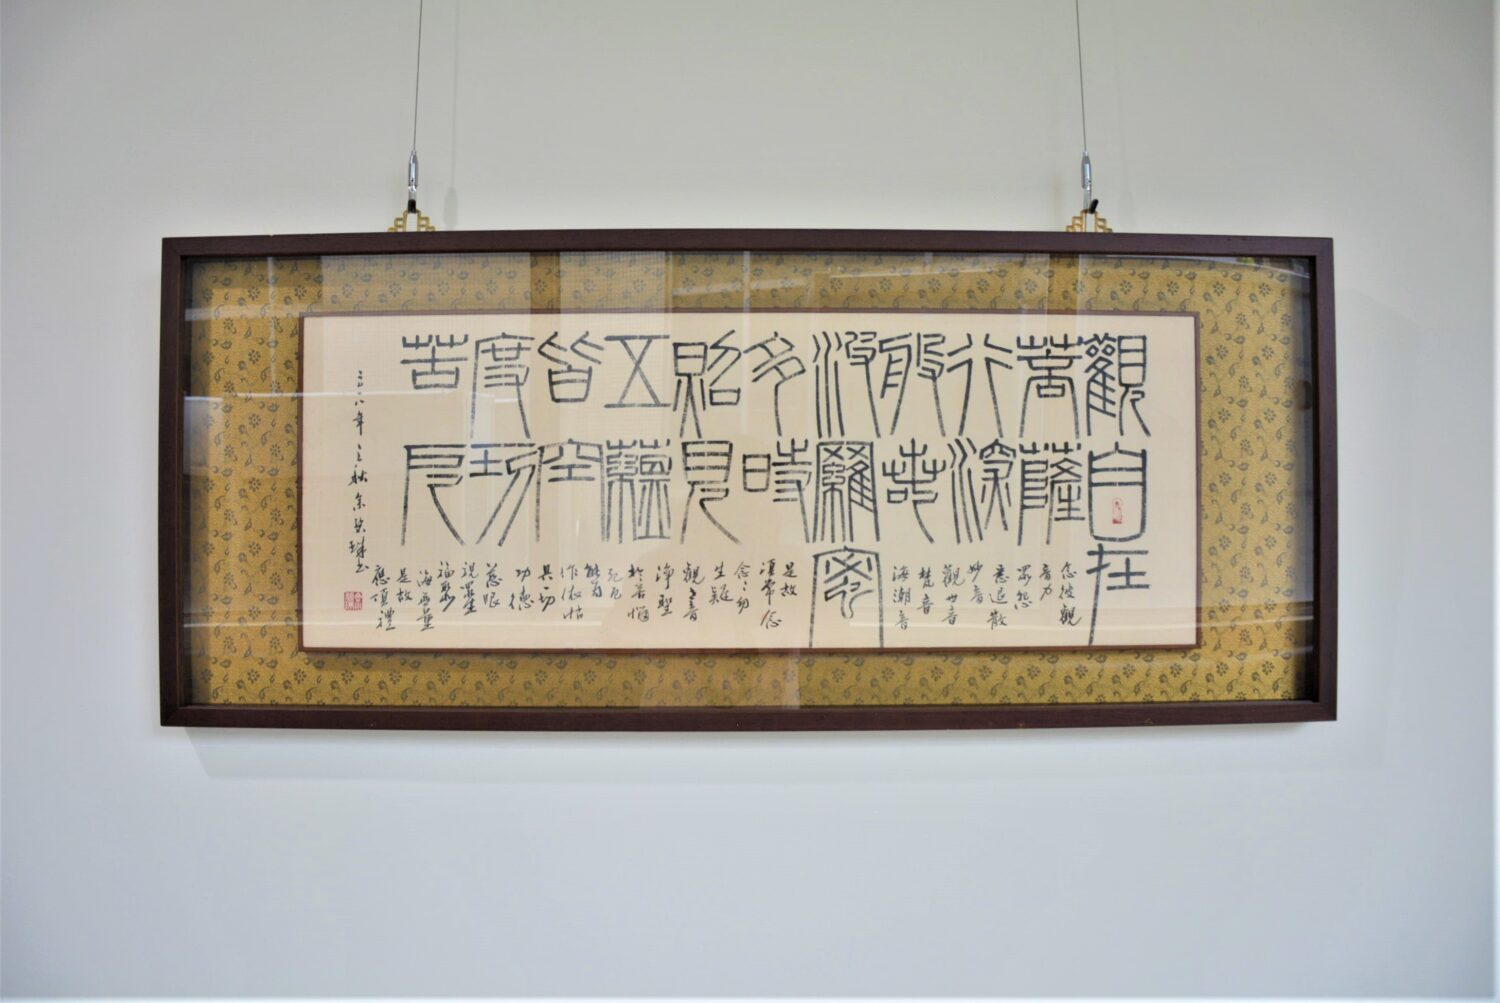 觀自在
菩薩
行深
般若
波羅蜜
多時
照見
五蘊
皆空
度一切
苦厄
念彼觀
音力
眾怨
悉退散
妙音
觀世音
梵音
海潮音
是故
須常念
念々勿
生疑
觀世音
淨聖
於苦惱
死厄
能為
作依怙
具一切
功德
慈眼
視眾生
福聚
海無量
是故
應頂禮
八年立秋余珠书